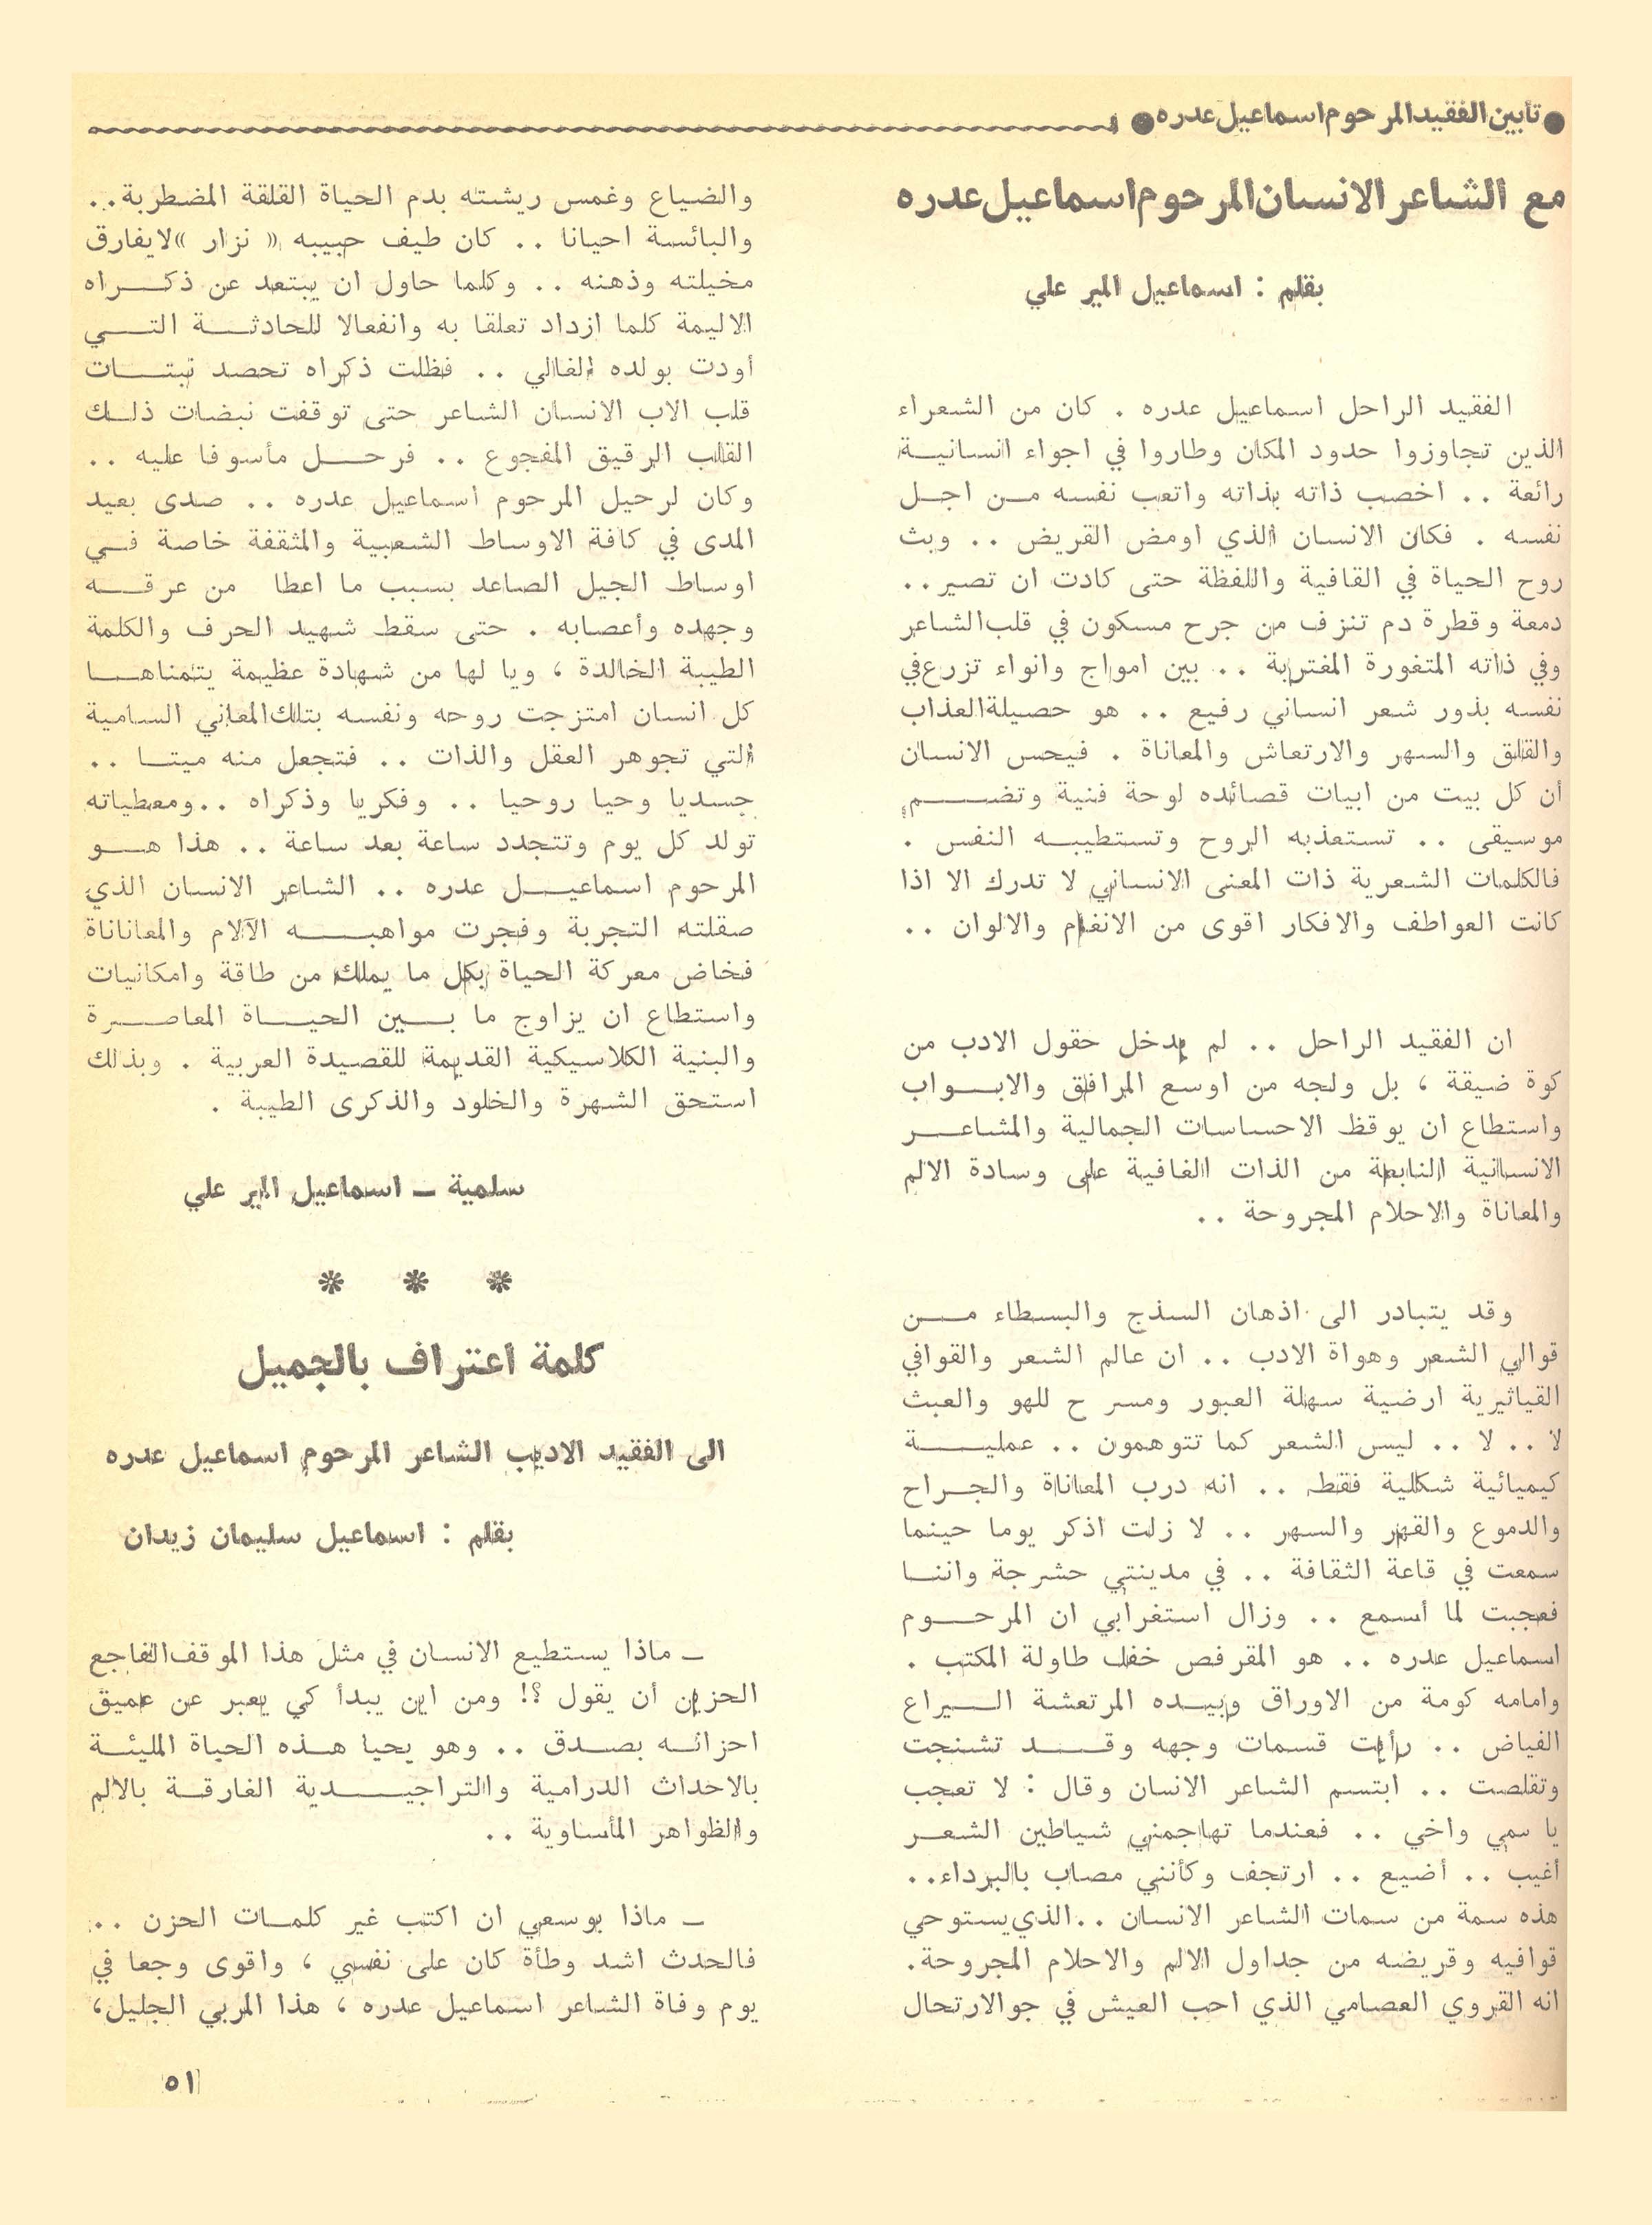 ● تأبين الفقيد المرحوم اسماعيل عدره ●
مع الشاعر الانسان المرحوم اسماعيل عدره
بقلم : اسماعيل المير علي
الفقيد الراحل اسماعيل عدره . كان من الشعراء
الذين تجاوزوا حدود المكان وطاروا في اجواء انسانية
رائعة .. اخصب ذاته بذاته واتعب نفسه من اجل
نفسه . فكان الانسان الذي اومض القريض .. وبث
روح الحياة في القافية واللفظة حتى كادت ان تصير ..
دمعة وقطرة دم تنزف من جرح مسكون في قلب الشاعر
وفي ذاته المتغورة المغتربة .. بين امواج وانواء تزرع في
نفسه بذور شعر انساني رفيع .. هو حصيلة العذاب
والقلق والسهر والارتعاش والمعاناة . فيحس الانسان
أن كل بيت من ابيات قصائده لوحة فنية وتضم
موسيقى .. تستعذبه الروح وتستطيبه النفس .
فالكلمات الشعرية ذات المعنى الانساني لا تدرك الا اذا
كانت العواطف والافكار اقوى من الانغام والالوان ..
ان الفقيد الراحل .. لم يدخل حقول الادب من
كوة ضيقة ، بل ولجه من اوسع المرافق والابواب
واستطاع ان يوقظ الاحساسات الجمالية والمشاعر
الانسانية النابعة من الذات الغافية على وسادة الالم
والمعاناة والاحلام المجروحة ..
وقد يتبادر الى اذهان السذج والبسطاء من
قوالي الشعر وهواة الادب .. ان عالم الشعر والقوافي
القياثيرية ارضية سهلة العبور ومسرح للهو والعبث
لا .. لا .. ليس الشعر كما تتوهمون .. عملية
كيميائية شكلية فقط .. انه درب المعاناة والجراح
والدموع والقهر والسهر .. لا زلت اذكر يوما حينما
سمعت في قاعة الثقافة .. في مدينتي حشرجة واننا
فعجبت لما أسمع .. وزال استغرابي ان المرحوم
اسماعيل عدره .. هو المقرفص خفلف طاولة المكتب .
وامامه كومة من الاوراق وبيده المرتعشة اليراع
الفياض .. رأيت قسمات وجهه وقد تشنجت
وتقلصت .. ابتسم الشاعر الانسان وقال : لا تعجب
يا سمي واخي .. فعندما تهاجمني شياطين الشعر
أغيب .. أضيع .. ارتجف وكأنني مصاب بالبرداء..
هذه سمة من سمات الشاعر الانسان ..الذي يستوحي
قوافيه وقريضه من جداول الالم والاحلام المجروحة.
انه القروي العصامي الذي احب العيش في جو الارتحال
والضياع وغمس ريشته بدم الحياة القلقة المضطربة..
والبائسة احيانا .. كان طيف حبيبه « نزار » لا يفارق
مخيلته وذهنه .. وكلما حاول ان يبتعد عن ذكراه
الاليمة كلما ازداد تعلقا به وانفعالا للحادثة التي
أودت بولده الغالي .. فظلت ذكراه تحصد نبتات
قلب الاب الانسان الشاعر حتى توقفت نبضات ذلك
القلب الرقيق المفجوع .. فرحل مأسوفا عليه ..
وكان لرحيل المرحوم اسماعيل عدره .. صدى بعيد
المدى في كافة الاوساط الشعبية والمثقفة خاصة في
اوساط الجيل الصاعد بسبب ما اعطا من عرقه
وجهده وأعصابه . حتى سقط شهيد الحرف والكلمة
الطيبة الخالدة ، ويا لها من شهادة عظيمة يتمناها
كل انسان امتزجت روحه ونفسه بتلك المعاني السامية
التي تجوهر العقل والذات .. فتجعل منه ميتا ..
جسديا وحيا روحيا .. وفكريا وذكراه ..ومعطياته
تولد كل يوم وتتجدد ساعة بعد ساعة .. هذا هو
المرحوم اسماعيل عدره .. الشاعر الانسان الذي
صقلته التجربة وفجرت مواهبه الآلام والمعاناناة
فخاض معركة الحياة بكل ما يملك من طاقة وامكانيات
واستطاع ان يزاوج ما بين الحياة المعاصرة
والبنية الكلاسيكية القديمة للقصيدة العربية . وبذلك
استحق الشهرة والخلود والذكرى الطيبة .
سلمية – اسماعيل المير علي
* * *
كلمة اعتراف بالجميل
الى الفقيد الاديب الشاعر المرحوم اسماعيل عدره
بقلم : اسماعيل سليمان زيدان
– ماذا يستطيع الانسان في مثل هذا الموقف الفاجع
الحزين أن يقول ؟! ومن اين يبدأ كي يعبر عن عميق
احزانه بصدق .. وهو يحيا هذه الحياة المليئة
بالاحداث الدرامية والتراجيدية الغارقة بالالم
والظواهر المأساوية ..
– ماذا بوسعي ان اكتب غير كلمات الحزن ..
فالحدث اشد وطأة كان على نفسي ، واقوى وجعا في
يوم وفاة الشاعر اسماعيل عدره ، هذا المربي الجليل،
٥١